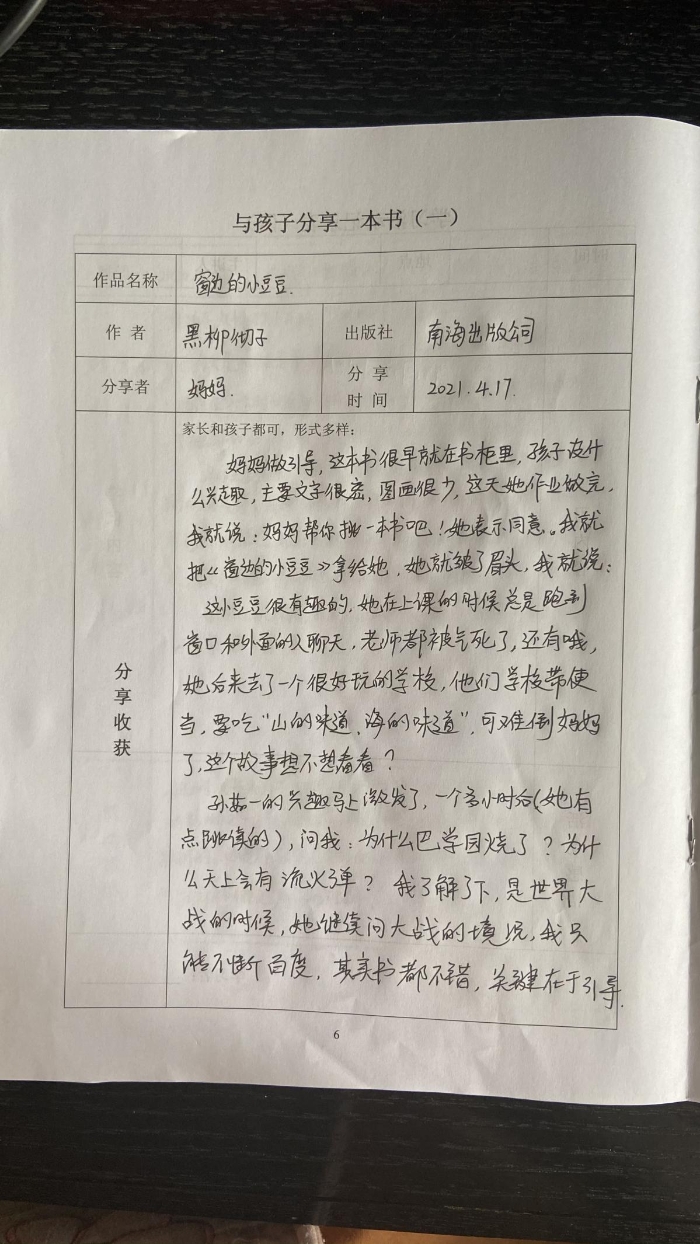 与孩子分享一本书（一）
作品名称 窗边的小豆豆.
作 者 黑柳彻子 出版社 南海出版公司
分享者 妈妈. 分 享 时 间 2021.4.17.
家长和孩子都可，形式多样：
分享收获
妈妈做引导，这本书很早就在书柜里，孩子没什
么兴趣，主要文字很密，图画很少，这天她作业做完，
我就说：妈妈帮你挑一本书吧！她表示同意。我就
把《窗边的小豆豆》拿给她，她就皱了眉头，我就说：
这小豆豆很有趣的，她在上课的时候总是跑到
窗口和外面的人聊天，老师都被气死了，还有哦，
她后来去了一个很好玩的学校，他们学校带便
当，要吃“山的味道、海的味道”，可难倒妈妈
了，这个故事想不想看看？
孙茹一的兴趣马上激发了，一个多小时后（她有
点跳读的），问我：为什么巴学园烧了？为什
么天上会有流火弹？我了解了下，是世界大
战的时候，她继续问大战的境况，我只
能不断百度，其实书都不错，关键在于引导.
6